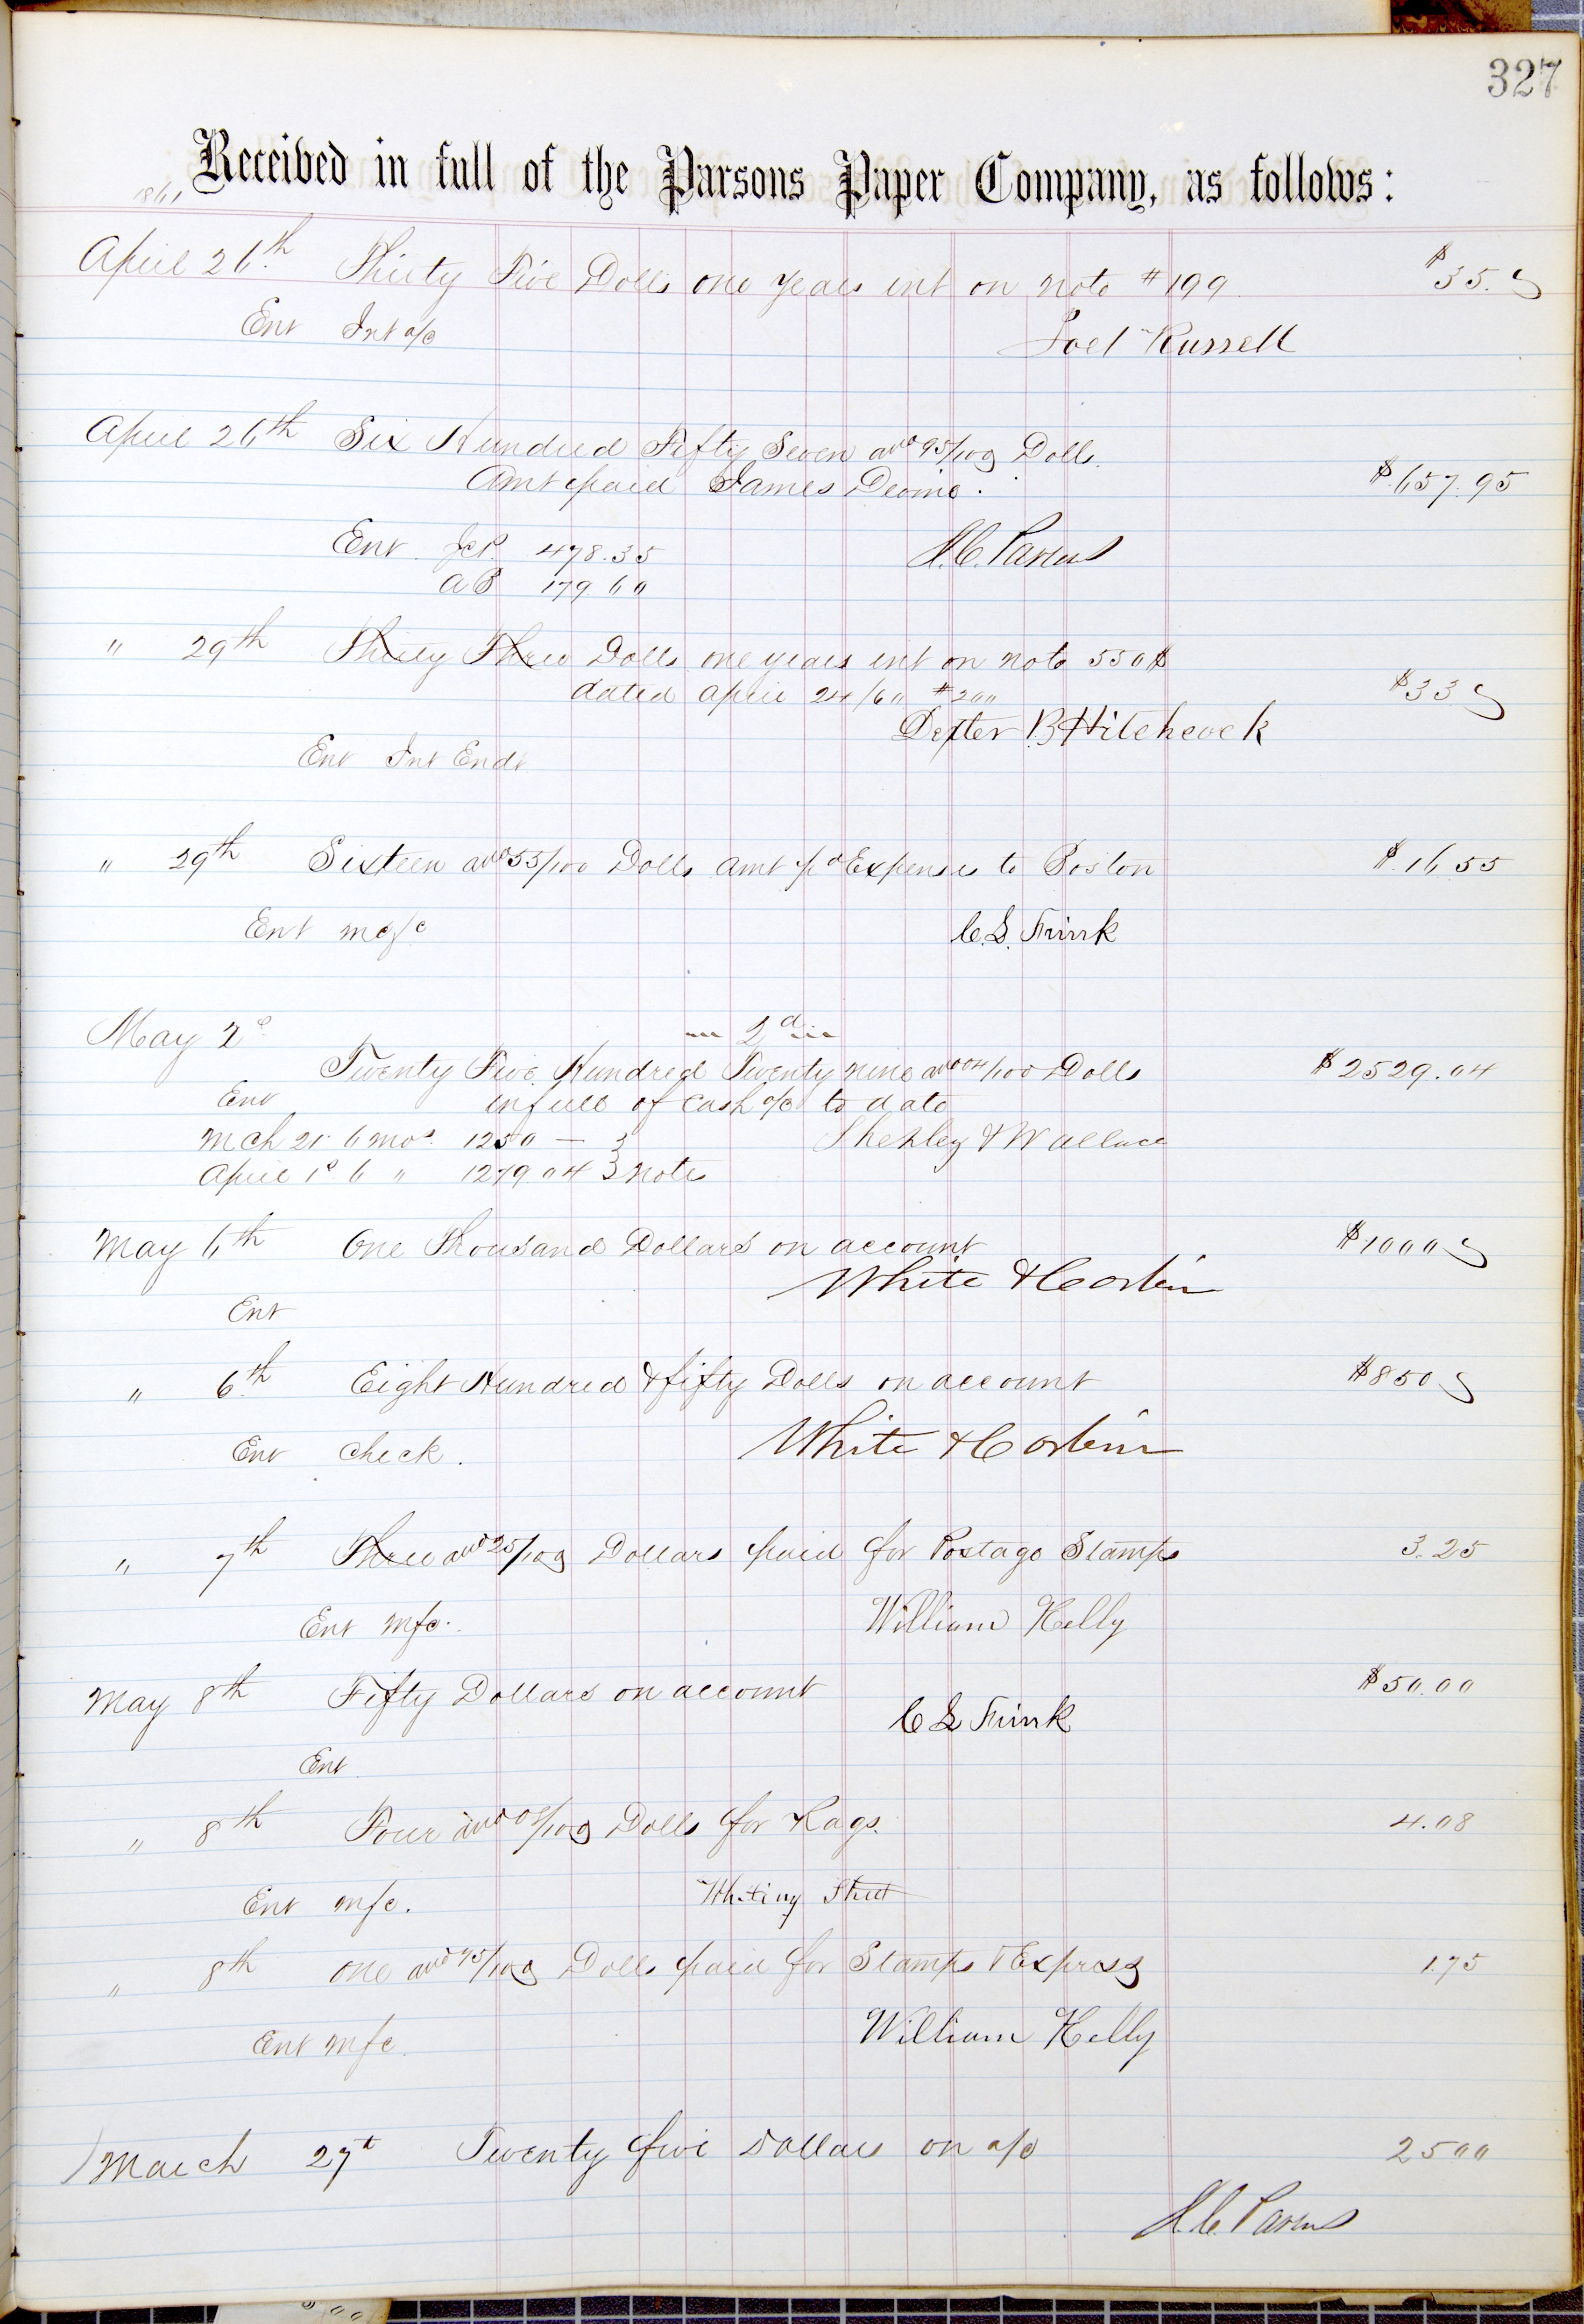 327
Received in full of the Parsons Paper Company, as follows:
1861
April 26th Thirty Five Dolls one years int on note #199 $35.
Ent Int a/c Joel Russell
April 26th Six Hundred Fifty Seven and 95/100 Dolls.
Amt paid James $657.95
Ent 478.35 J.C. Parsons
AB 179 60
" 29th Thirty Three Dolls one years int on note 550$
dated April 24/60 #200 $33
Dexter B Hitchcock
Ent Int Endt
" 29th Sixteen and 55/100 Dolls amt pd Expenses to Boston $16 55
Ent C.S. Frink
May 2d 2d
Twenty Five Hundred Twenty nine and 04/100 Dolls $2529.04
Ent in full of Cash a/c to date
Mch 21 6 mos 1250 — } & Wallace
April 1st 6 " 1279 04 } Note
May 6th One Thousand Dollars on account $1000
White & Corbin
Ent
" 6th Eight Hundred & fifty Dolls on account $850
Ent Check. White & Corbin
" 7th Three and 25/100 Dollars paid for Postage Stamps 3.25
Ent Mfc. William Kelly
May 8th Fifty Dollars on account $50.00
C S Frink
Ent
" 8th Four and 08/100 Dolls for Rags. 4.08
Ent Mfc. Whiting Street
" 8th One and 75/100 Dolls paid for Stamps & Express 1.75
Ent Mfc. William Kelly
March 27t Twenty five Dollars on a/c 2500
J.C. Parsons